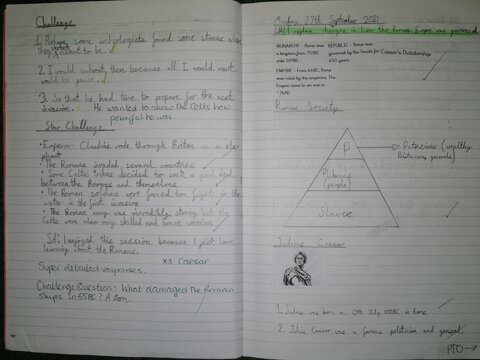 Challenge
1. Perhaps some archeologists found some stones where
they weren't meant to be.
2. I would submit, then because all I would want
would be peace.
3. So that he had time to prepare for the next
invasion. He wanted to show the Celts how
powerful he was.
Star Challenge
• Emperor Claudius rode through Britain on an ele-
phant
• The Romans invaded several countries
• Some Celtic tribes decided to seek a good deal
between the Romans and themselves.
• The Roman soldiers were forced to fight in the
water in the first invasion
• The Roman army was incredibly strong but the
Celts were also very skilled and brave warriors
SA: I enjoyed this session because I just love
learning about the Romans.
x3 Caesar
Super detailed responses.
Challenge Question: What damaged the Roman
ships in 55BC? A storm.
Monday 27th September 2021
LO: I explain changes in how the Roman Empire was governed
MONARCHY - Rome was
a kingdom from 753BC
until 509BC
REPUBLIC - Rome was
governed by the Senate for
450 years
Caesar's Dictatorship
EMPIRE - From 44BC, Rome
was ruled by the emperors. The
Empire came to an end in
476AD
Roman Society
P
Patricians (wealthy
Politicians, generals)
Plebians
(people)
Slaves
Julius Caesar
1. Julius was born on 13th July 100BC in Rome.
2. Julius Caesar was a famous politician and general.
PTO →